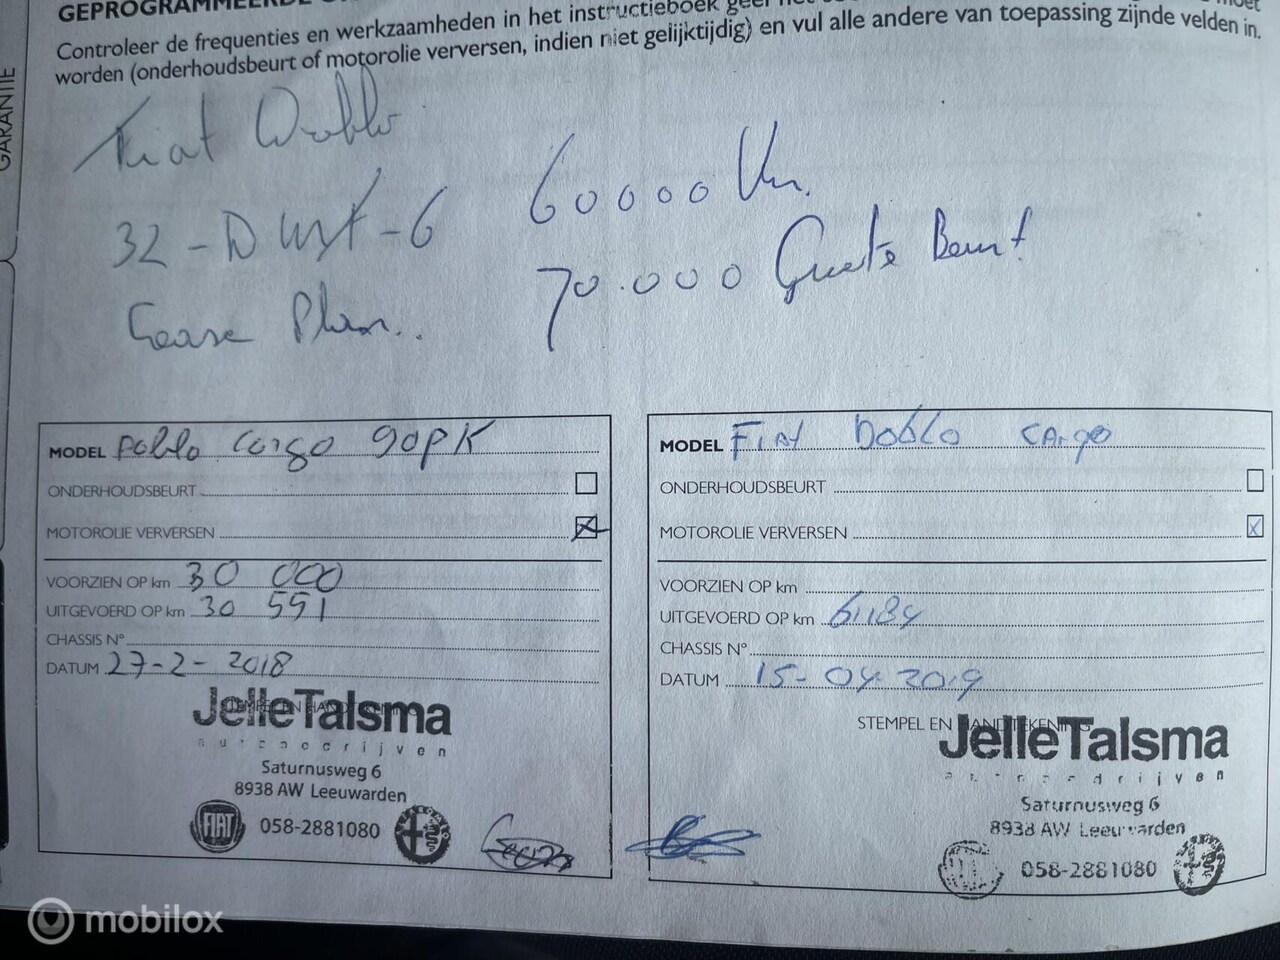 GEPROGRAMMEERDE
Controleer de frequenties en werkzaamheden in het instructieboek
worden (onderhoudsbeurt of motorolie verversen, indien niet gelijktijdig) en vul alle andere van toepassing zijnde velden in.
GARANTIE
Fiat Doblo
60000 Km.
32-D -6
70.000 Groote Beurt
Lease Plan..
MODEL Doblo Cargo 90PK
ONDERHOUDSBEURT
MOTOROLIE VERVERSEN
VOORZIEN OP km 30 000
UITGEVOERD OP km 30 591
CHASSIS N°
DATUM 27-2-2018
STEMPEL EN HANDTEKENING
JelleTalsma
autobedrijven
Saturnusweg 6
8938 AW Leeuwarden
FIAT
058-2881080
MODEL FIAT Doblo CArgo
ONDERHOUDSBEURT
MOTOROLIE VERVERSEN
VOORZIEN OP km
UITGEVOERD OP km 61184
CHASSIS N°
DATUM 15-04-2019
STEMPEL EN HANDTEKENING
JelleTalsma
autobedrijven
Saturnusweg 6
8938 AW Leeuwarden
058-2881080
mobilox